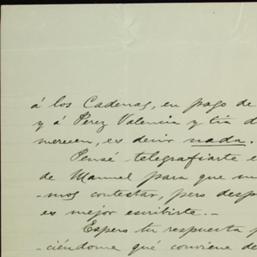 á los Cadenas, en pago de
y á Pérez Valencia y tia d
merecen, es decir nada.
Pensé telegrafiarte e
de Manuel para que nu
-mos contestar, pero desp
es mejor escribirte.-
Espero tu respuesta p
-ciéndome qué conviene de